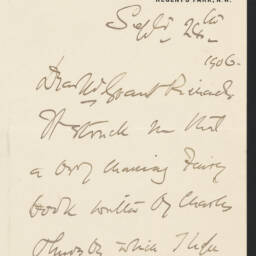 REGENT'S PARK, N.W.
Septr 24th
1906.
Dear Mr Grant Richards
It struck me that
a very charming Fairy
book written by Charles
which I hope